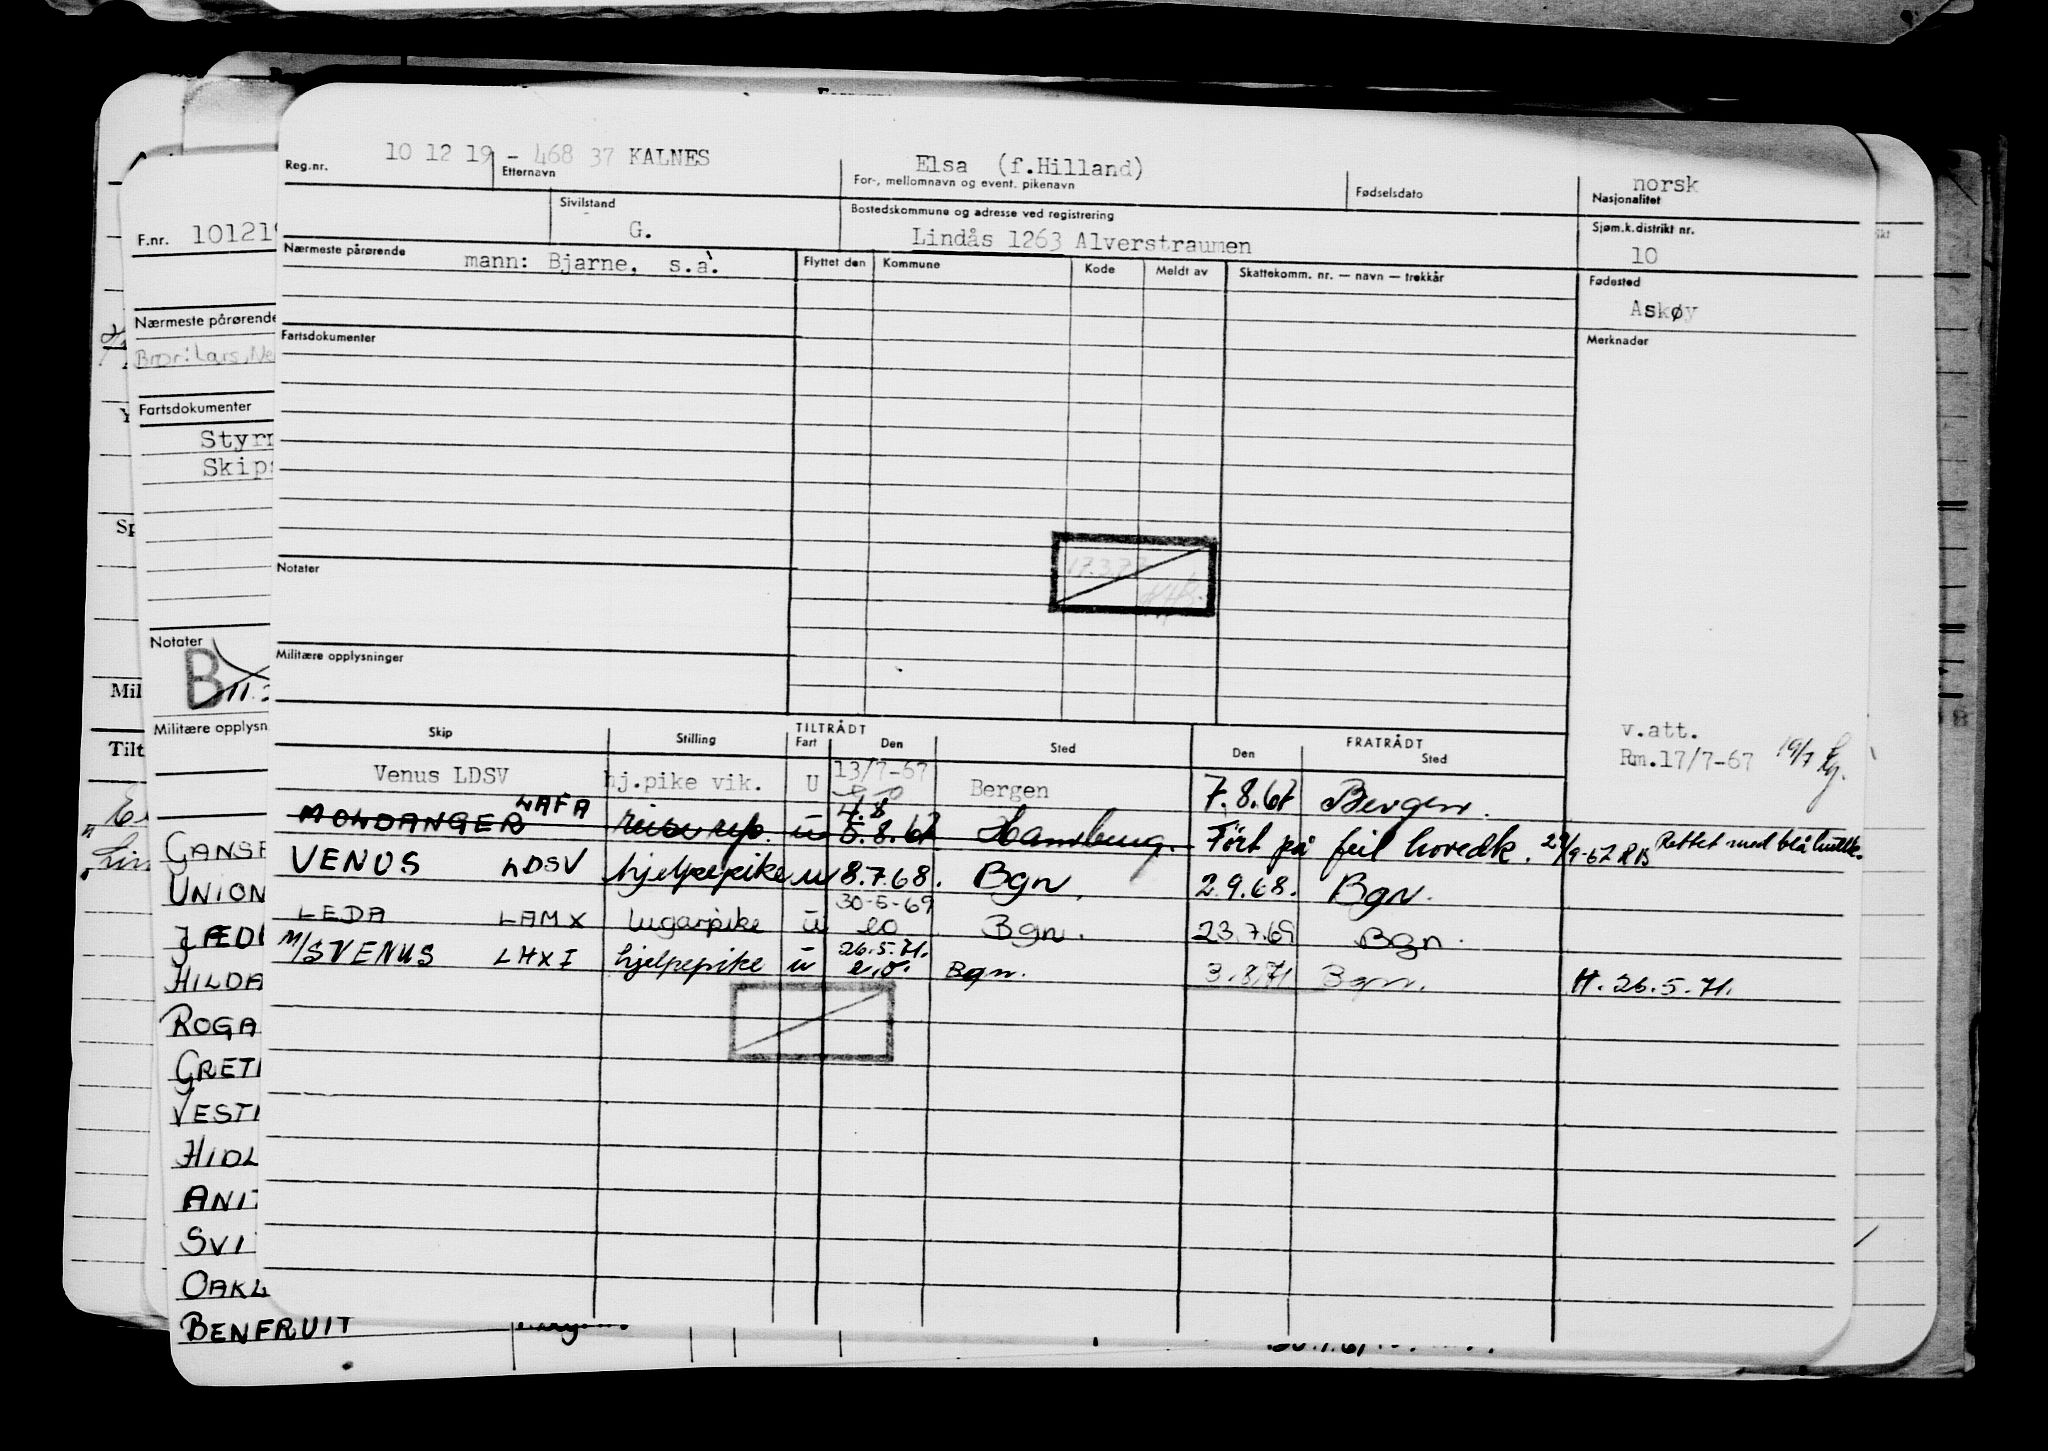 10 12 19 - 468 37 KALNES Elsa (f.Hilland) norsk
Reg.nr. Etternavn For-, mellomnavn og event. pikenavn Fødselsdato Nasjonalitet
Sivilstand Bostedskommune og adresse ved registrering Sjøm.k.distrikt nr.
F.nr. 10121
G. Lindås 1263 Alverstraumen 10
Nærmeste pårørende Flyttet den Kommune Kode Meldt av Skattekomm. nr. — navn — trekkår Fødested
mann: Bjarne, s.a. Askøy
Nærmeste pårørende
Fartsdokumenter Merknader
Bror: Lars, Ne
Fartsdokumenter
Styrm
Skips
Sp
17.3.72
Notater
Notater
B 11.
Militære opplysninger
Mil
Militære opplysn
Tilt
v.att.
Rm.17/7-67 19/7
Skip Stilling TILTRÅDT Fart Den Sted FRATRÅDT Den Sted
Venus LDSV hj.pike vik. U 13/7-67 Bergen 7.8.67 Bergen.
4.8
MOLDANGER LAFA reise rep. u 5.8.67 Hamburg. Ført på feil hovedk. 29/9-67 RB Rettet med blå hullk.
VENUS LDSV hjelpepike u 8.7.68. Bgn. 2.9.68. Bgn.
30-5-69
LEDA LAMX lugarpike u eo Bgn. 23.7.69 Bgn.
26.5.71.
M/S VENUS LHXI hjelpepike u e.o. Bgn. 3.8.71 Bgn. H. 26.5.71.
GANSF
UNION
JÆD
HILDA
ROGA
GRET
VEST
HIDL
ANI
SVI
OAKL
BENFRUIT